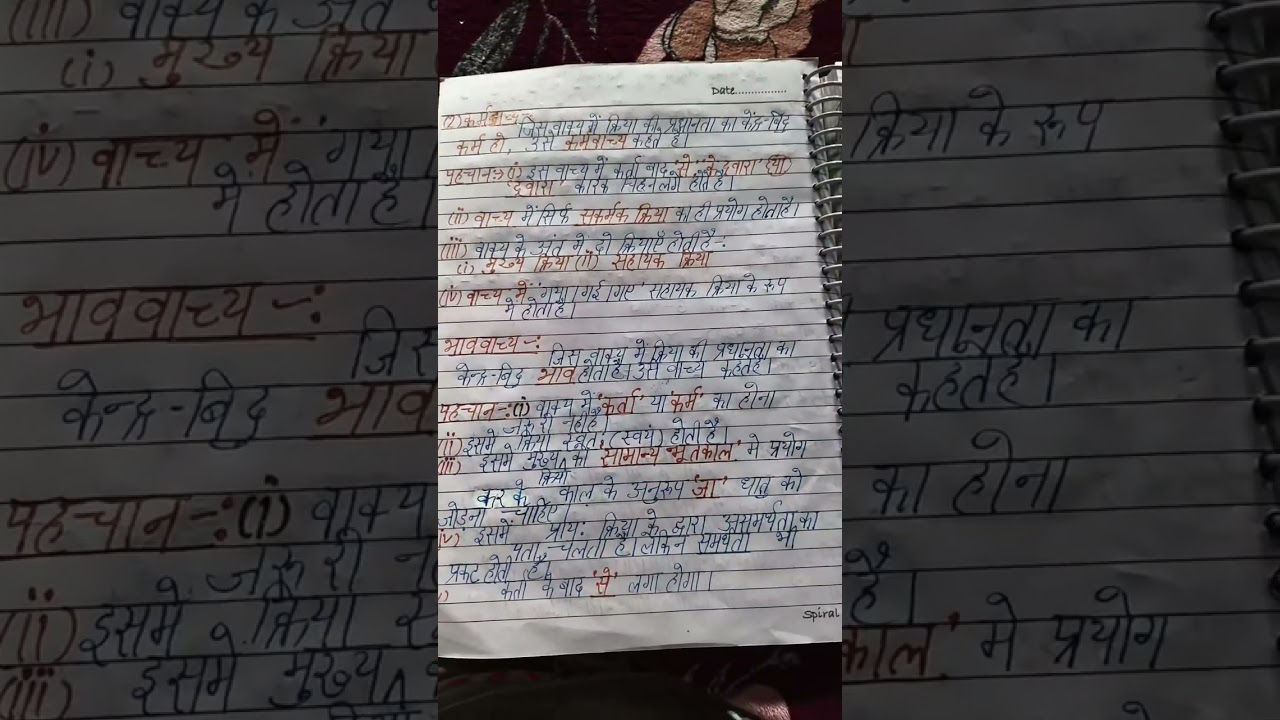 Date................
(2) कर्मवाच्य
जिस वाक्य में क्रिया की प्रधानता का केंद्र-बिंदु
कर्म हो, उसे कर्मवाच्य कहते है।
पहचान-: (i) इस वाच्य में कर्ता बाद 'से' 'के द्वारा' (या)
'द्वारा' कारक चिह्न लगे होते है।
(ii) वाच्य में सिर्फ सकर्मक क्रिया का ही प्रयोग होता है।
(iii) वाक्य के अंत में दो क्रियाएँ होती है -:
(i) मुख्य क्रिया (ii) सहायक क्रिया
(iv) वाच्य में 'गया। गई। गए' सहायक क्रिया के रूप
मे होता है।
भाववाच्य -:
जिस वाक्य में क्रिया की प्रधानता का
केन्द्र-बिदु भाव होता है। उसे वाच्य कहते है।
पहचान -: (i) वाक्य में 'कर्ता' या 'कर्म' का होना
जरूरी नही है।
(ii) इसमे क्रिया स्वत: (स्वयं) होती है।
(iii) इसमे मुख्य क्रिया को 'सामान्य भूतकाल' मे प्रयोग
कर के काल के अनुरूप 'जा' धातु को
जोड़ना चाहिए।
(iv) इसमें प्राय: क्रिया के द्वारा असमर्थता का
पता चलता है। लेकिन समर्थता भी
प्रकट होती है।
कर्ता के बाद 'से' लगा होगा।
Spiral